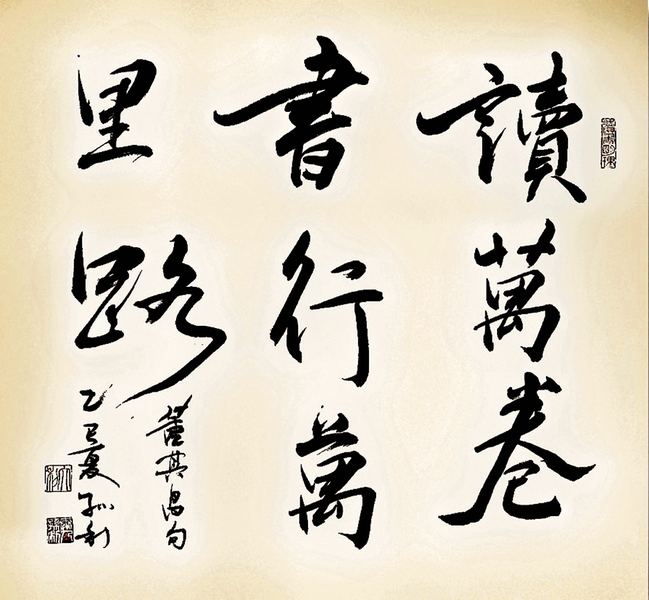 讀萬卷
書行萬
里路
董其昌句
乙巳夏孙利